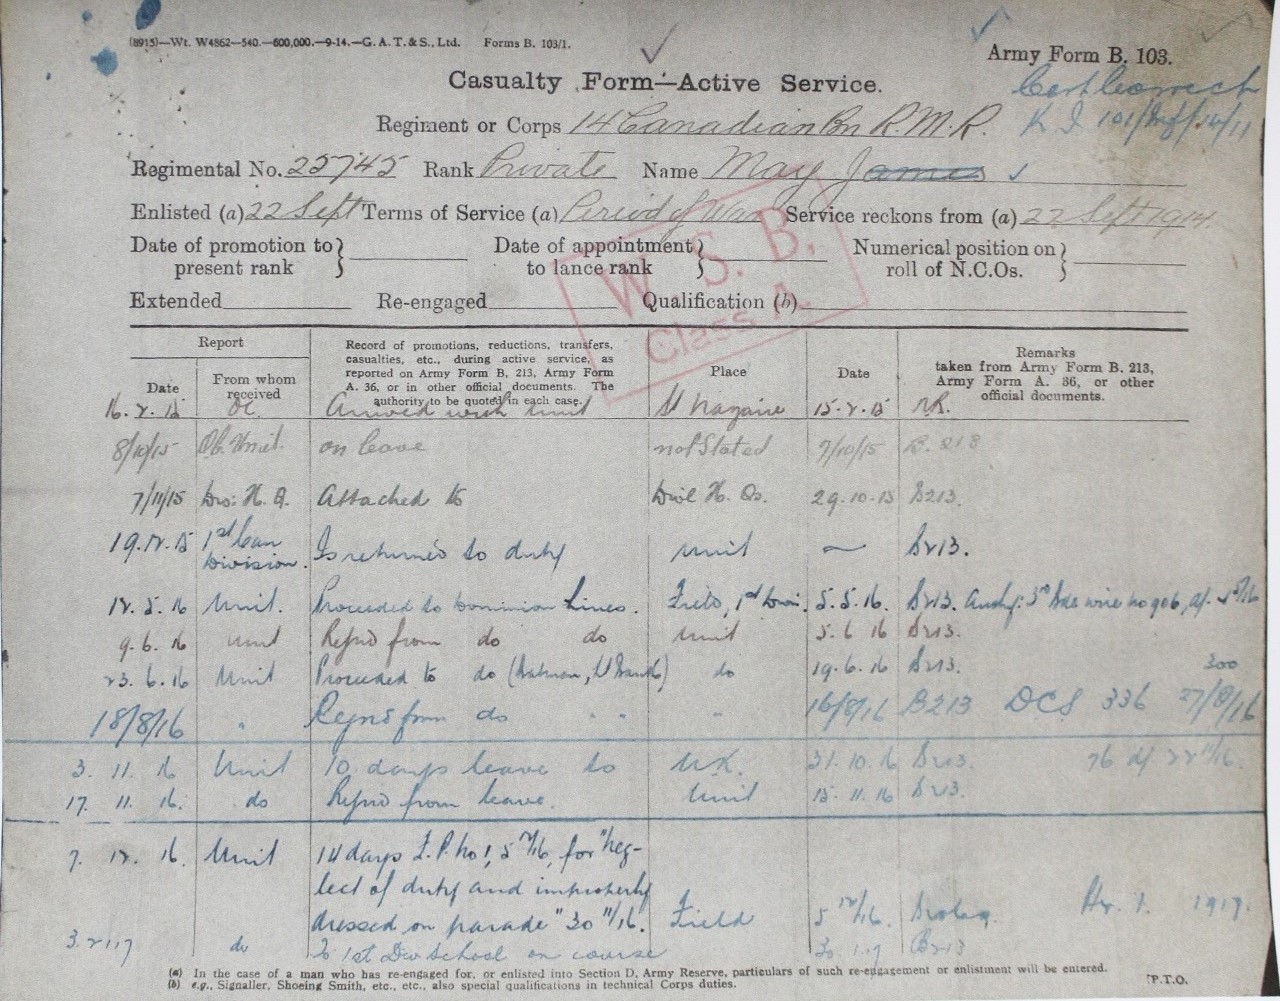 (8915)—Wt. W4862—540.—600,000.—9-14.—G. A. T. & S., Ltd. Forms B. 103/1.
Army Form B. 103.
Casualty Form—Active Service.
Regiment or Corps 14 Canadian Bn R.M.R.
Regimental No. 25745 Rank Private Name May James
Enlisted (a) 22 Sept Terms of Service (a) Period of War Service reckons from (a) 22 Sept 1914.
Date of promotion to present rank } Date of appointment to lance rank } Numerical position on roll of N.C.Os. }
Extended Re-engaged Qualification (b)
W. S. B.
Class A.
Report
Date
From whom received
Record of promotions, reductions, transfers,
casualties, etc., during active service, as
reported on Army Form B, 213, Army Form
A. 36, or in other official documents. The
authority to be quoted in each case.
Place
Date
Remarks
taken from Army Form B. 213,
Army Form A. 36, or other
official documents.
16.2.15 OC. Arrived with unit St Nazaire 15.2.15
8/10/15 Unit. on leave not Stated 7/10/15 B. 213
7/11/15 Div: H. Q. Attached to Divl H. Qs. 29.10.15 B213.
19.12.15 1st Can Division. Is returned to duty Unit — B213.
12.5.16 Unit. Proceeded to Dominion Lines. Field, 5.5.16. B213.
9.6.16 Unit Rejnd from do do Unit 5.6.16 B213.
23.6.16 Unit Proceeded to do do 19.6.16 B213. 300
18/8/16 " Rejnd from do " " " 16/8/16 B213 DCS 336 27/8/16
3. 11. 16 Unit 10 days leave to U.K. 31.10.16 B213. 76
17. 11. 16. do Rejnd from leave. Unit 15.11.16 B213.
7. 12. 16. Unit 14 days F.P. No 1, 5 12/16, for "neg-
lect of duty and improperly
dressed on parade" 30 11/16. Field 5 12/16. 1. 1917.
3.2.17 do To 1st Div School on course 30.1.17 B213
(a) In the case of a man who has re-engaged for, or enlisted into Section D, Army Reserve, particulars of such re-engagement or enlistment will be entered.
(b) e.g., Signaller, Shoeing Smith, etc., etc., also special qualifications in technical Corps duties.
P.T.O.